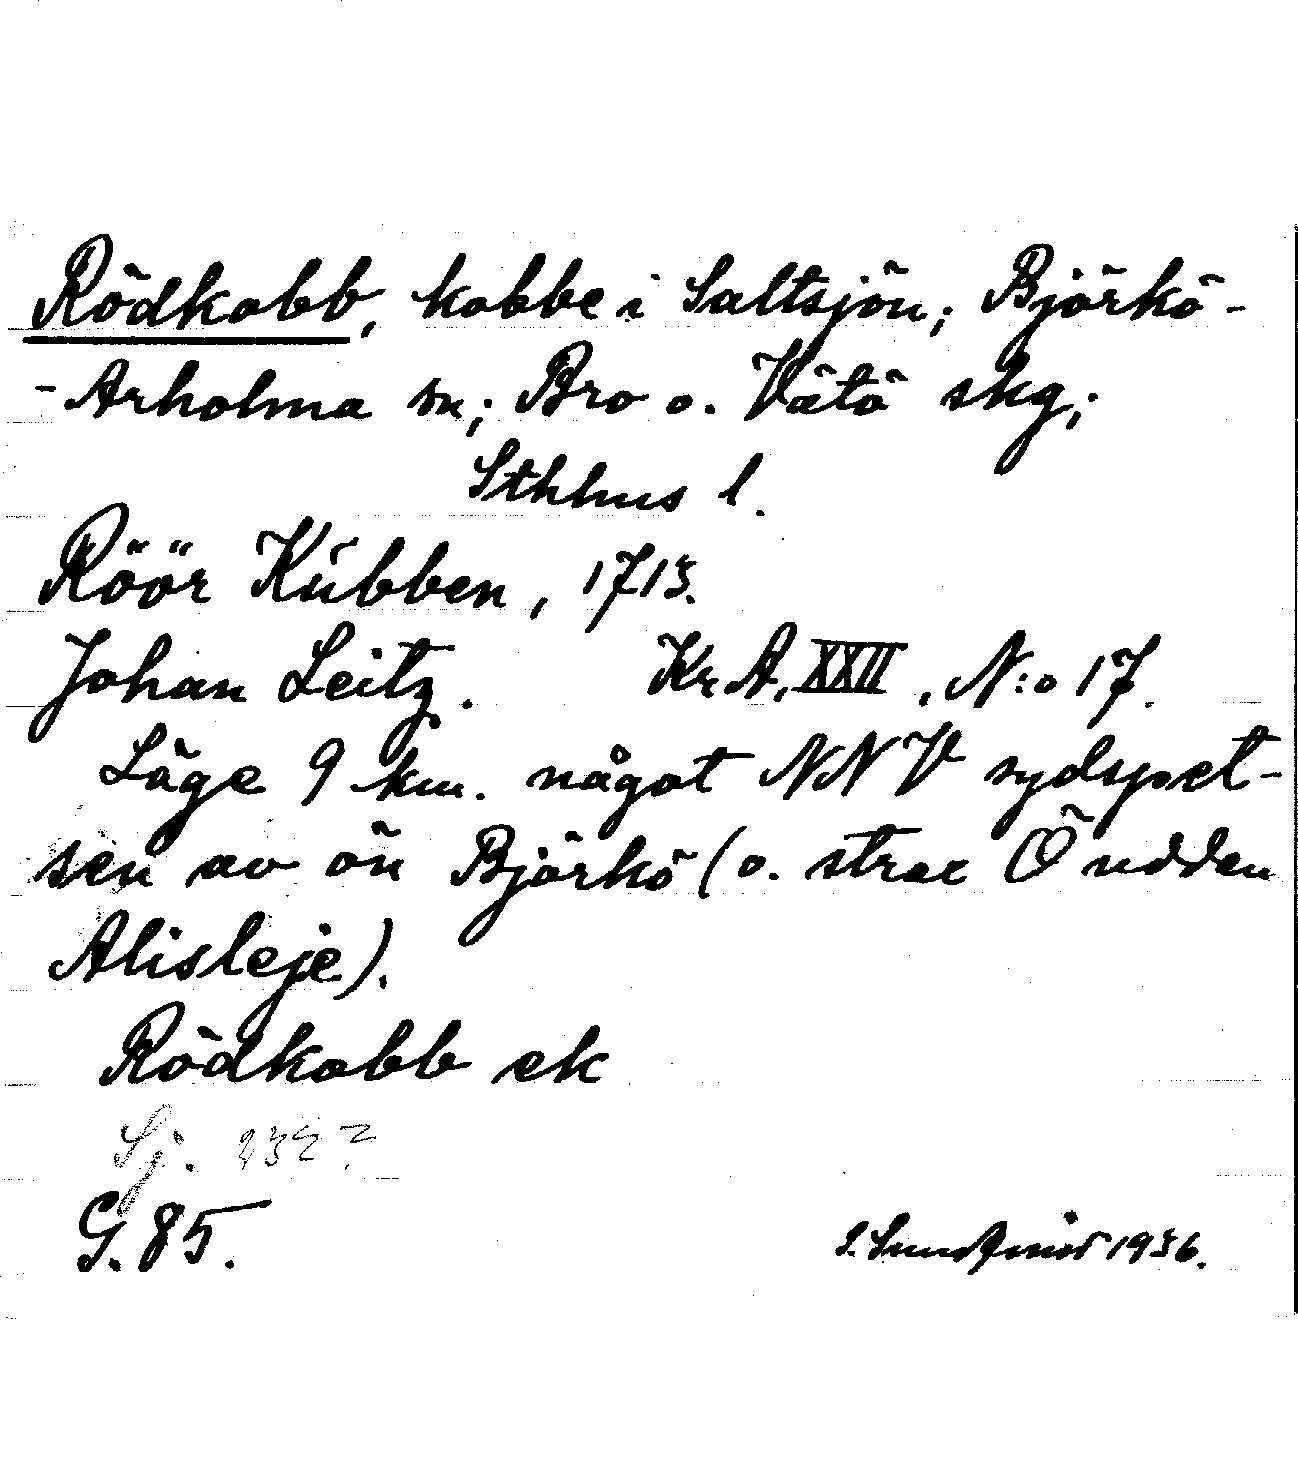 Rödkobb, kobbe i Saltsjön; Björkö-
-Arholma sn; Bro o. Vätö skg;
Sthlms l.
Röör Kúbben, 1713.
Johan Leitz. KrA, XXII, N:o 17.
Läge 9 km. något NNV sydspet-
sen av ön Björkö (o. strax Ö udden
Alisleje).
Rödkobb ek
Sj.
G. 85.
1936.